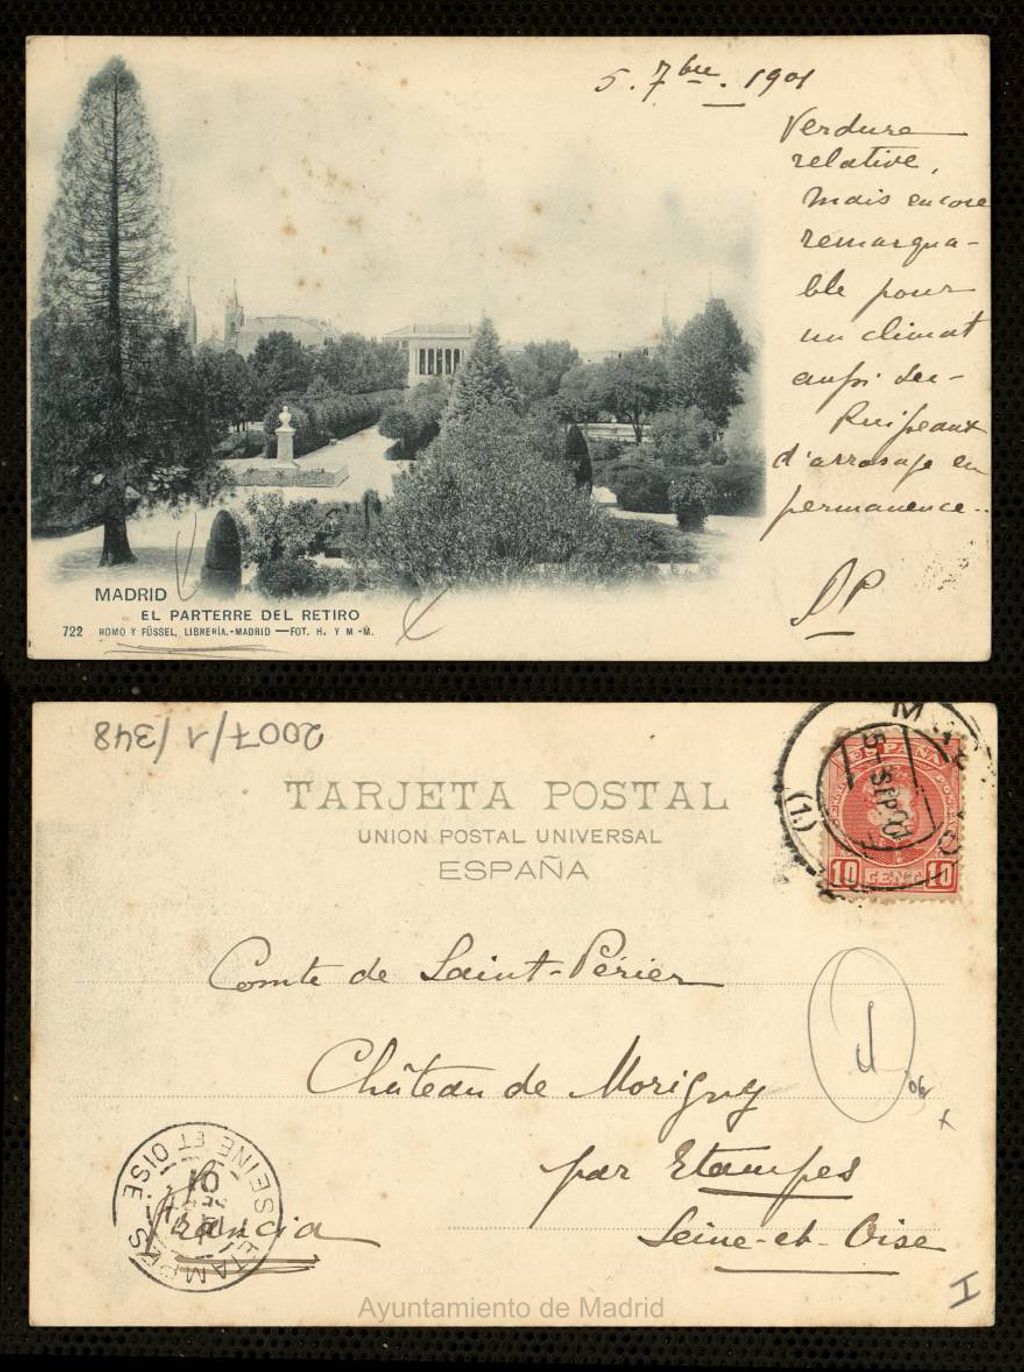 5. 7bre. 1901
Verdure
relative,
mais encore
remarqua-
ble pour
un climat
aussi sec -
Ruisseaux
d'arrosage en
permanence..
MADRID
EL PARTERRE DEL RETIRO
722 ROMO Y FÜSSEL, LIBRERÍA.-MADRID — FOT. H. Y M -M.
2007/1/348
TARJETA POSTAL
UNION POSTAL UNIVERSAL
ESPAÑA
(1.)
5 SEP 01
ESPAÑA
10 CENT. 10
Comte de Saint-Périer
Château de Morigny
par Etampes
Seine-et-Oise
Francia
ETAMPES
SEINE ET OISE
01
I
Ayuntamiento de Madrid